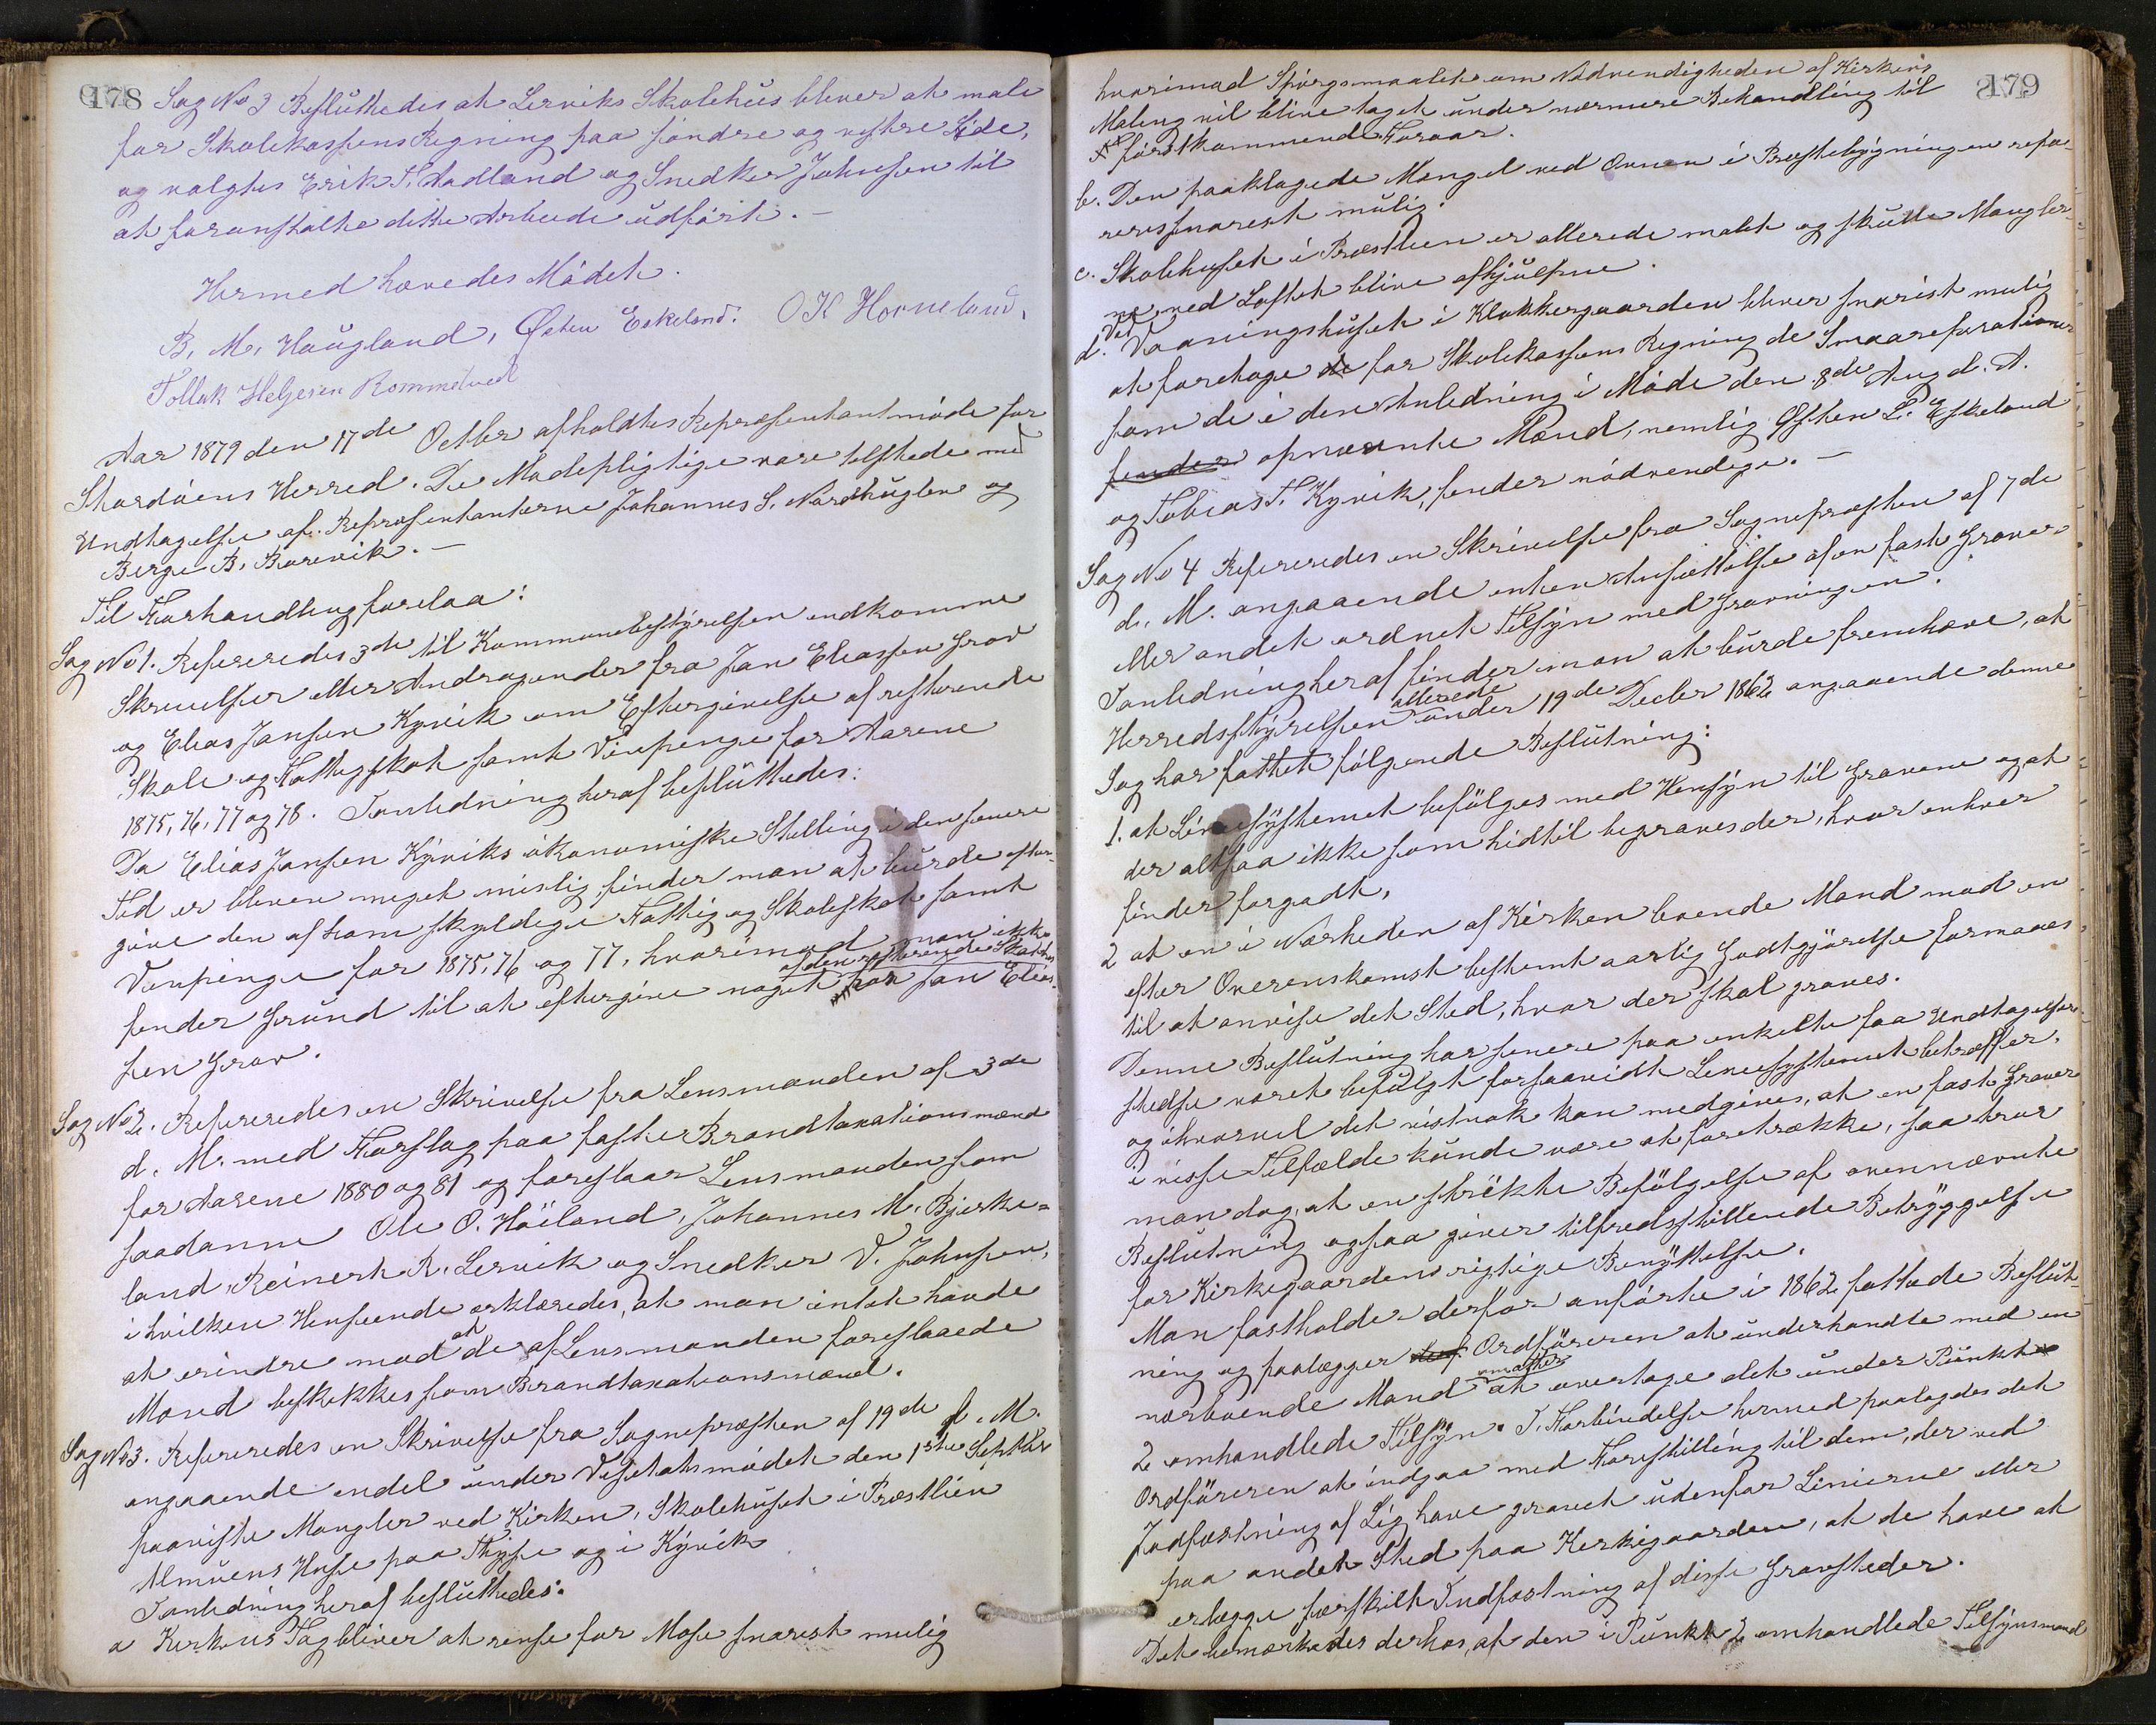 178
Sag No 3 Besluttedes at Lerviks Skolehus bliver at male
for Skolekassens Regning paa søndre og vestre Side,
og valgtes Erik T. Aadland og Snedker Johnsen til
at foranstalte dette Arbeide udført. –
Hermed hævedes Mødet.
B. M. Haugland, Østen Eskeland. O K Horneland.
Tollak Helgesen Rommetved
Aar 1879 den 17de Octbr afholdtes Repræsentantmøde for
Stordøens Herred. De Mødepligtige vare tilstede med
Undtagelse af Repræsentanterne Johannes S. Nordhuglen og
Berge B. Borevik. –
Til Forhandling forelaa:
Sag No 1. Refereredes 3de til Kommunebestyrelsen indkomne
Skrivelser eller Andragender fra Jan Eliassen Grov
og Elias Jansen Kyvik om Eftergivelse af resterende
Skole og Fattigskat samt Vinpenge for Aarene
1875, 76, 77 og 78. I Anledning heraf besluttedes:
Da Elias Jansen Kyviks økonomiske Stilling i den senere
Tid er bleven meget mislig, finder man at burde efter-
give den af ham skyldige Fattig og Skoleskat samt
Vinpenge for 1875, 76 og 77, hvorimod man ikke
finder Grund til at eftergive noget af den resterende Skat hos Jan Elias-
sen Grov.
Sag No 2. Refereredes en Skrivelse fra Lensmanden af 3de
d. M. med Forslag paa faste Brandtaxationsmænd
for Aarene 1880 og 81 og foreslaar Lensmanden som
saadanne Ole O. Høiland, Johannes M. Bjerke-
land, Reinert R. Lervik og Snedker V. Johnsen,
i hvilken Henseende erklæredes, at man intet havde
at erindre mod at de af Lensmanden foreslaaede
Mænd beskikkes som Brandtaxationsmænd.
Sag No 3. Refereredes en Skrivelse fra Sognepræsten af 19de f. M.
angaaende endel under Visitatsmødet den 1ste Septbr
paaviste Mangler ved Kirken, Skolehuset i Præstlien
Almuens Huse paa Thyse og i Kyvik
I Anledning heraf besluttedes:
a Kirkens Tag bliver at rense for Mose snarest mulig
179
hvorimod Spørgsmaalet om Nødvendigheden af Kirkens
Maling vil blive taget under nærmere Behandling til
førstkommende Foraar.
b. Den paaklagede Mangel ved Ovnen i Præstebygningen repa-
reres snarest mulig.
c. Skolehuset i Præstlien er allerede malet og skulle Mangler-
ne ved Loftet blive afhjulpne.
d. Ved Vaaningshuset i Klokkergaarden bliver snarest mulig
at foretage for Skolekassens Regning de Smaareparationer
som de i den Anledning i Møde den 8de Aug d. A.
finder opnævnte Mænd, nemlig Østen L. Eskeland
og Tobias T. Kyvik, finder nødvendige. –
Sag No 4 Refereredes en Skrivelse fra Sognepræsten af 7de
d. M. angaaende enten Ansættelse af en fast Graver
eller andet ordnet Tilsyn med Gravningen.
I Anledning heraf finder man at burde fremhæve, at
Herredsstyrelsen allerede under 19de Decbr 1862 angaaende denne
Sag har fattet følgende Beslutning:
1. at Liniesystemet befølges med Hensyn til Gravene og at
der altsaa ikke som hidtil begraves der, hvor enhver
finder forgodt,
2 at en i Nærheden af Kirken boende Mand mod en
efter Overenskomst bestemt aarlig Godtgjørelse formaaes
til at anvise det Sted, hvor der skal graves.
Denne Beslutning har senere paa enkelte faa Undtagelser
stedse været befulgt forsaavidt Liniesystemet betræffer,
og ihvorvel det vistnok kan medgives, at en fast Graver
i visse Tilfælde kunde være at foretrække, saa tror
man dog, at en strikte Befølgelse af ovennævnte
Beslutning ogsaa giver tilfredsstillende Betryggelse
for Kirkegaardens rigtige Benyttelse.
Man fastholder derfor anførte i 1862 fattede Beslut-
ning og paalægger Ordføreren at underhandle med en
nærboende Mand om at overtage det under Punkt
2 omhandlede Tilsyn. I Forbindelse hermed paalagdes det
Ordføreren at indgaa med Forestilling til dem, der ved
Jordfæstning af Lig have gravet udenfor Linierne eller
paa andet Sted paa Kirkegaarden, at de have at
erlægge særskilt Indfæstning af disse Gravsteder.
Det bemærkedes derhos, at den i Punkt 2 omhandlede Tilsynsmand